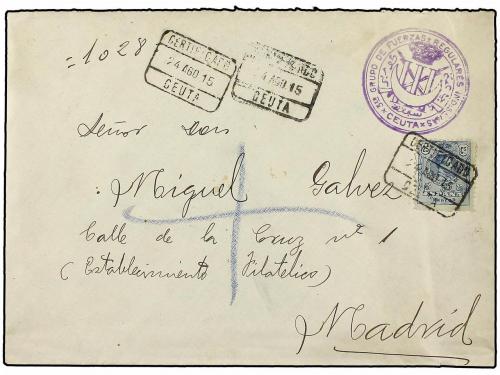 =1028
CERTIFICADO
24 AGO 15
CEUTA
CERTIFICADO
24 AGO 15
CEUTA
3er GRUPO DE FUERZAS REGULARES INDIGENAS
* CEUTA *
CERTIFICADO
Señor Don
Miguel Galvez
Calle de la Cruz nº 1
(Establecimiento Filatélico)
Madrid